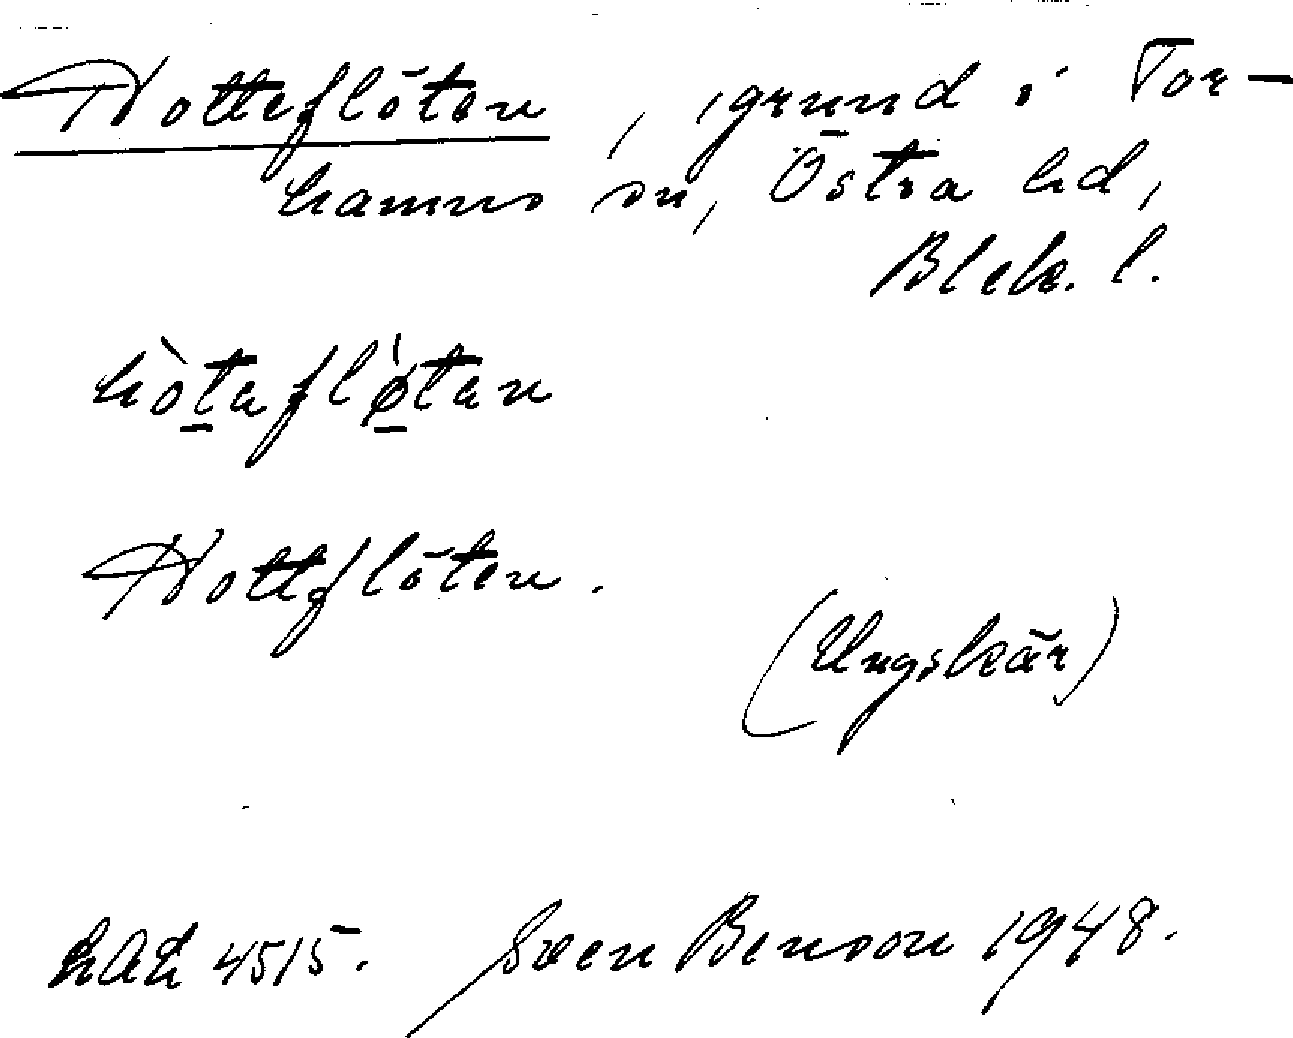 Hotteflöten, grund i Tor-
hamns sn, Östra hd,
Blek. l.
hòtaflø̀tan
Hotteflöten.
(Ungskär)
LAL 4515. Sven Benson 1948.